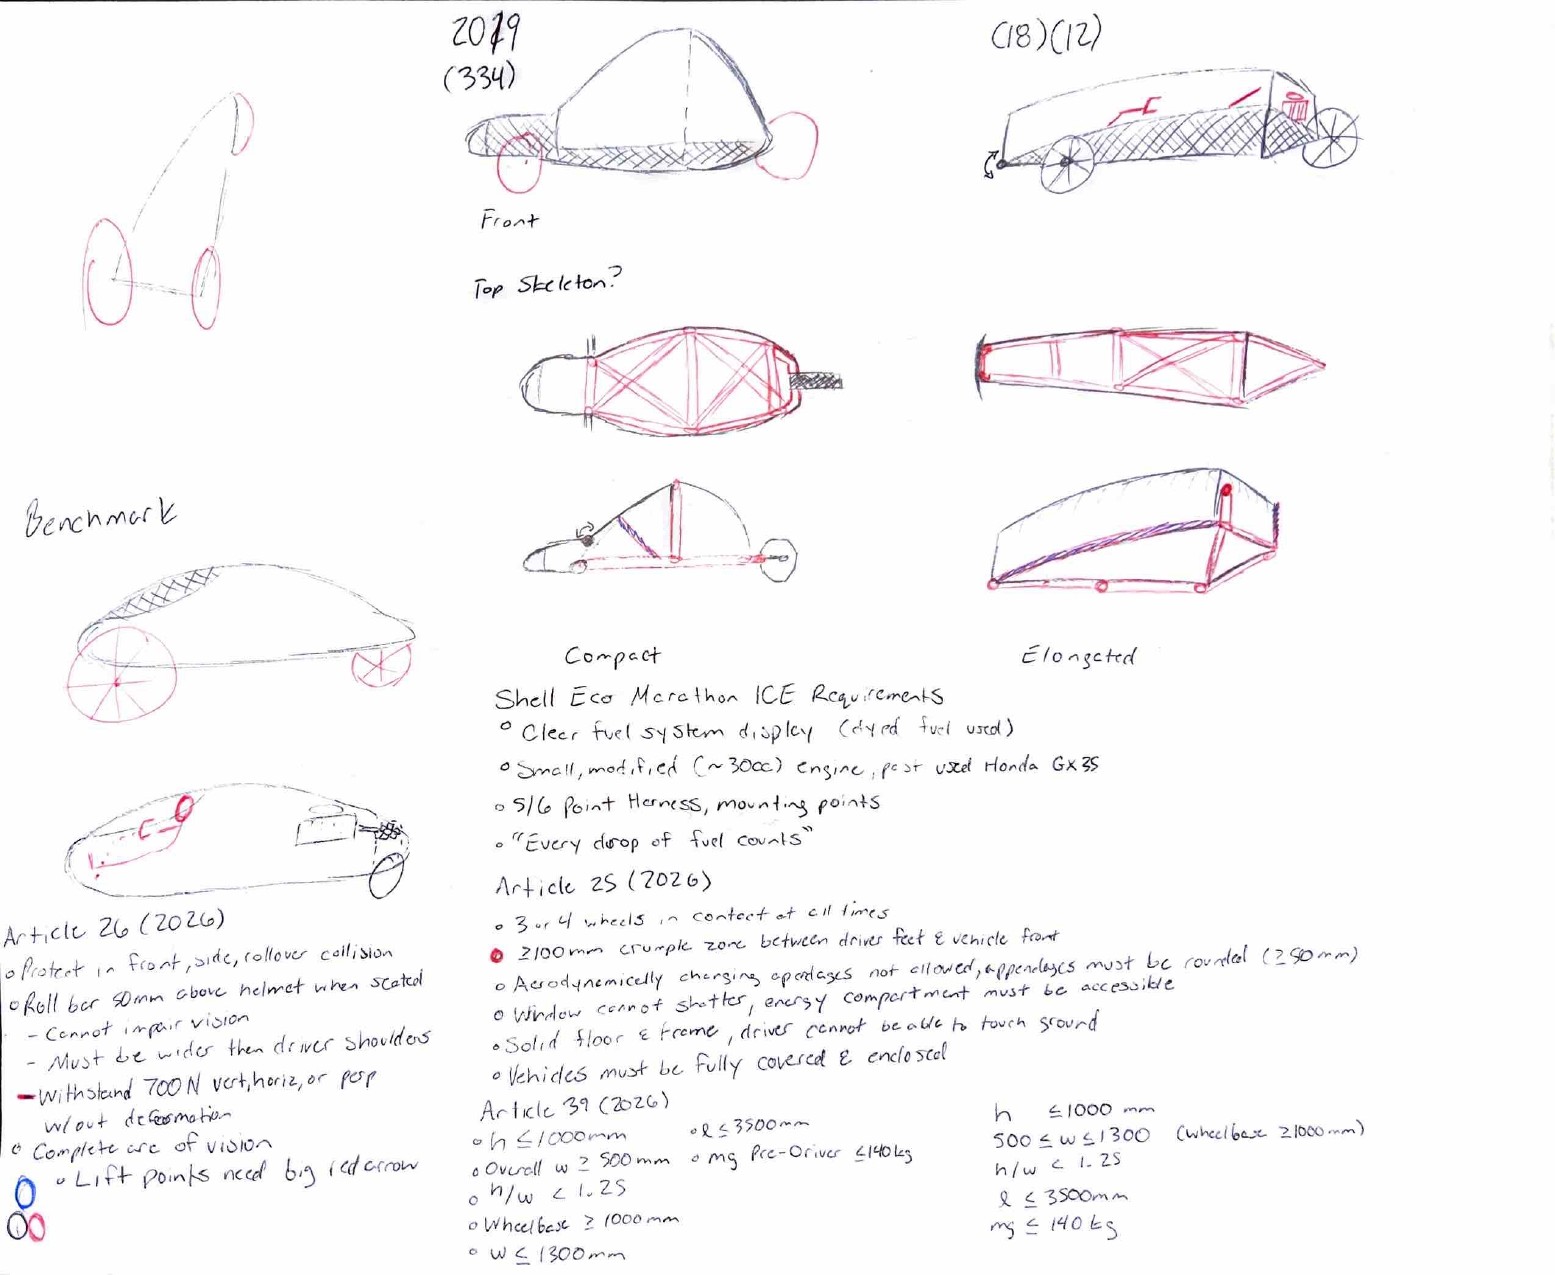 2019
(334)
(18)(12)
Front
Top Skeleton?
Benchmark
Compact
Elongated
Shell Eco Marathon ICE Requirements
Clear fuel system display (dyed fuel used)
Small, modified (~30cc) engine, past used Honda GX35
5/6 Point Harness, mounting points
"Every drop of fuel counts"
Article 25 (2026)
3 or 4 wheels in contact at all times
≥100mm crumple zone between driver feet & vehicle front
Aerodynamically changing apendages not allowed, appendages must be rounded (≥50mm)
Window cannot shatter, energy compartment must be accessible
Solid floor & frame, driver cannot be able to touch ground
Vehicles must be fully covered & enclosed
Article 26 (2026)
Protect in front, side, rollover collision
Roll bar 50mm above helmet when seated
- Cannot impair vision
- Must be wider then driver shoulders
- Withstand 700N vert, horiz, or perp
w/out deformation
Complete arc of vision
Lift points need big red arrow
Article 39 (2026)
h ≤ 1000mm
l ≤ 3500mm
Overall w ≥ 500mm
mg Pre-Driver ≤140kg
h/w < 1.25
Wheelbase ≥ 1000mm
w ≤ 1300mm
h ≤1000 mm
500 ≤ w ≤ 1300 (wheelbase ≥1000mm)
h/w < 1.25
l ≤ 3500mm
mg ≤ 140kg